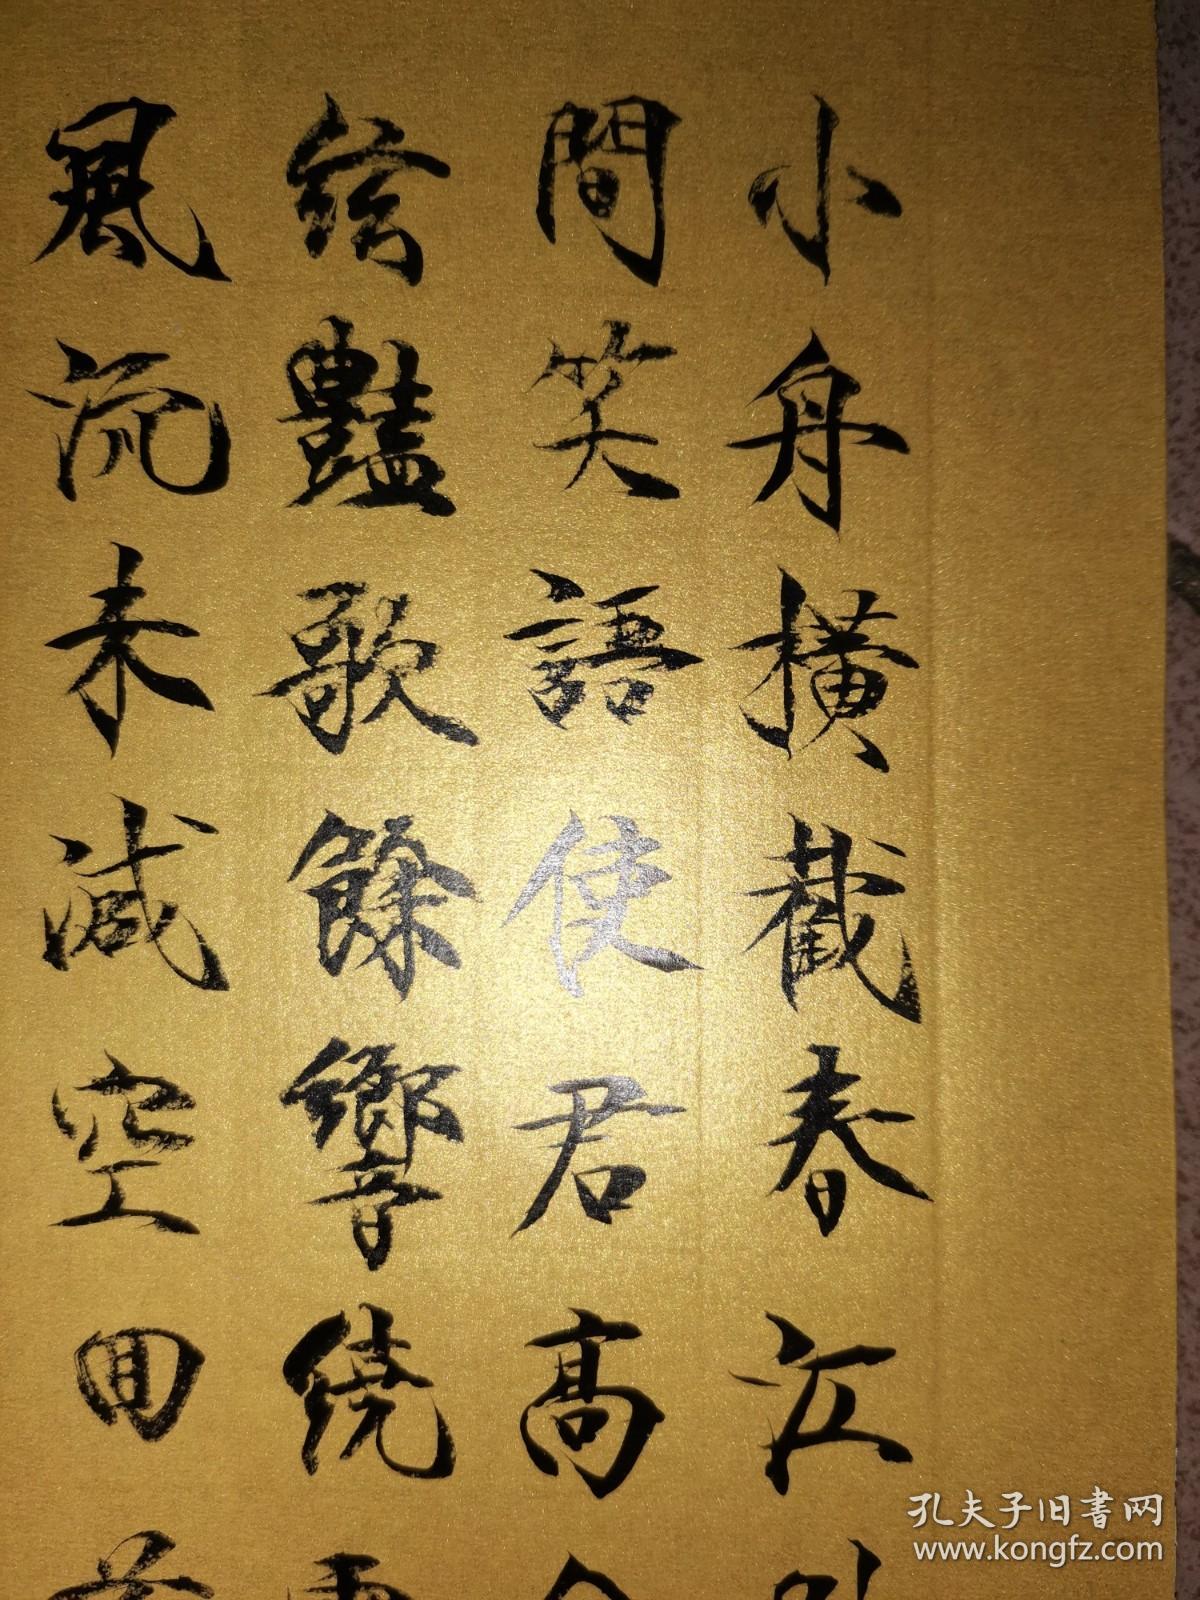 小舟橫截春江
間笑語使君高
絃豔歌餘響繞
風流未減空回
孔夫子旧書网
www.kongfz.com